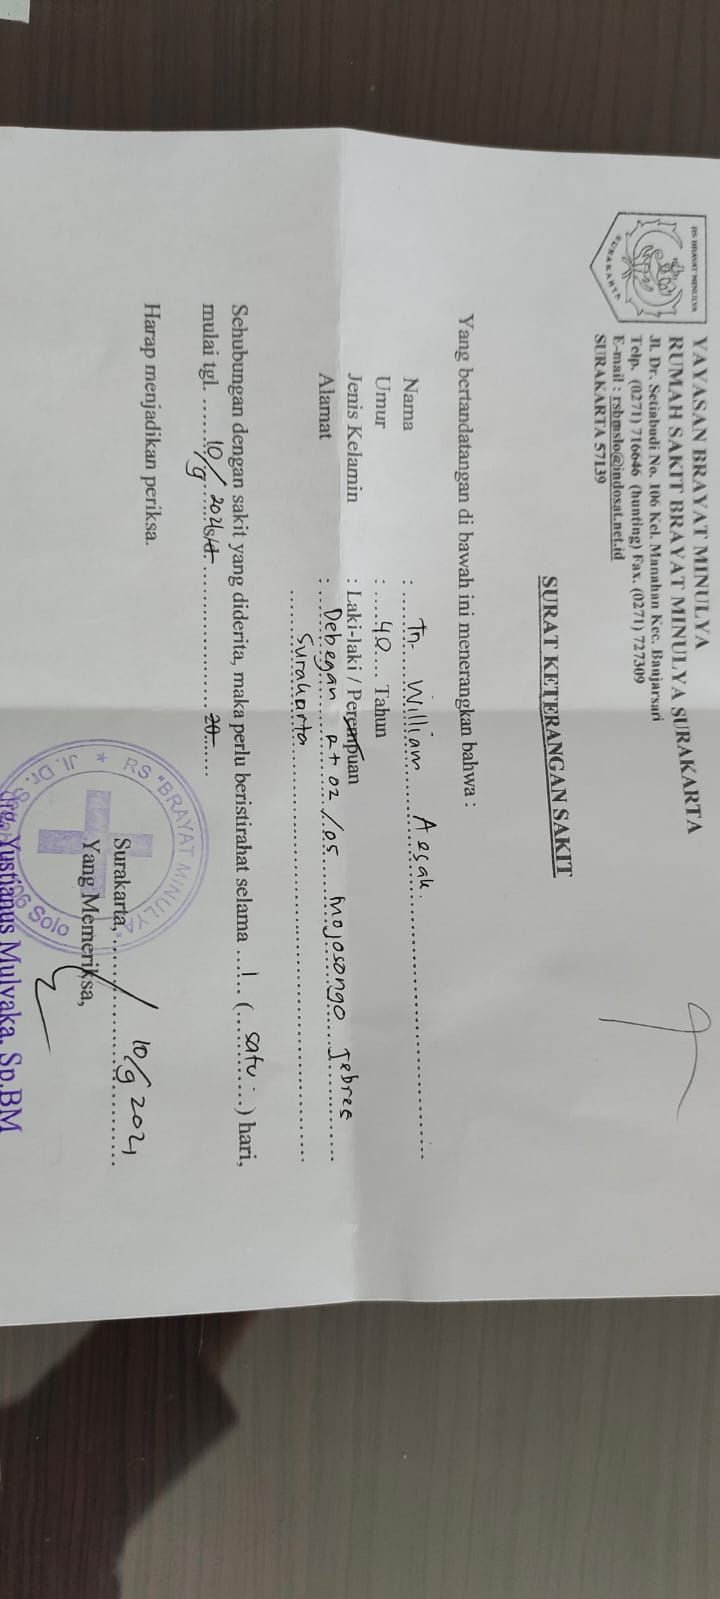 YAYASAN BRAYAT MINULYA
RUMAH SAKIT BRAYAT MINULYA SURAKARTA
Jl. Dr. Setiabudi No. 106 Kel. Manahan Kec. Banjarsari
Telp. (0271) 716646 (hunting) Fax. (0271) 727309
E-mail : rsbmslo@indosat.net.id
SURAKARTA 57139
RS BRAYAT MINULYA
SURAKARTA
SURAT KETERANGAN SAKIT
Yang bertandatangan di bawah ini menerangkan bahwa :
Nama : Tn. William Aesak.
Umur : 40 Tahun
Jenis Kelamin : Laki-laki / Perempuan
Alamat : Debegan Rt 02/05 Mojosongo Jebres
Surakarta
Sehubungan dengan sakit yang diderita, maka perlu beristirahat selama 1 (satu) hari,
mulai tgl. 10/9 2021 s/d 20
Harap menjadikan periksa.
Surakarta, 10/9 2021
Yang Memeriksa,
RS "BRAYAT MINULYA"
Jl. Dr. 106 Solo
drg. Yustianus Mulyaka, Sp.BM